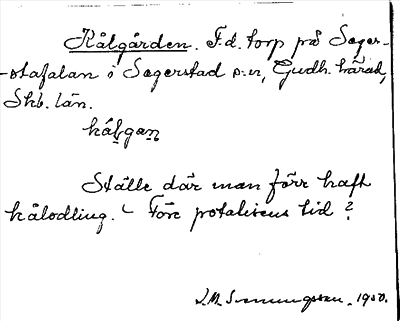 Kålgården. F.d. torp på Seger-
-stafalan i Segerstad s:n, Gudh. härad,
Skb. län.
kålgan
Ställe där man förr haft
kålodling. - Före potatisens tid?
J.M. Svenungsson. 1930.